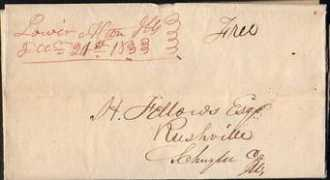 Lower Alton Ills
Decem 21st 1833
Free
H. Fellows Esqr
Rushville
Schuyler Co
Ills